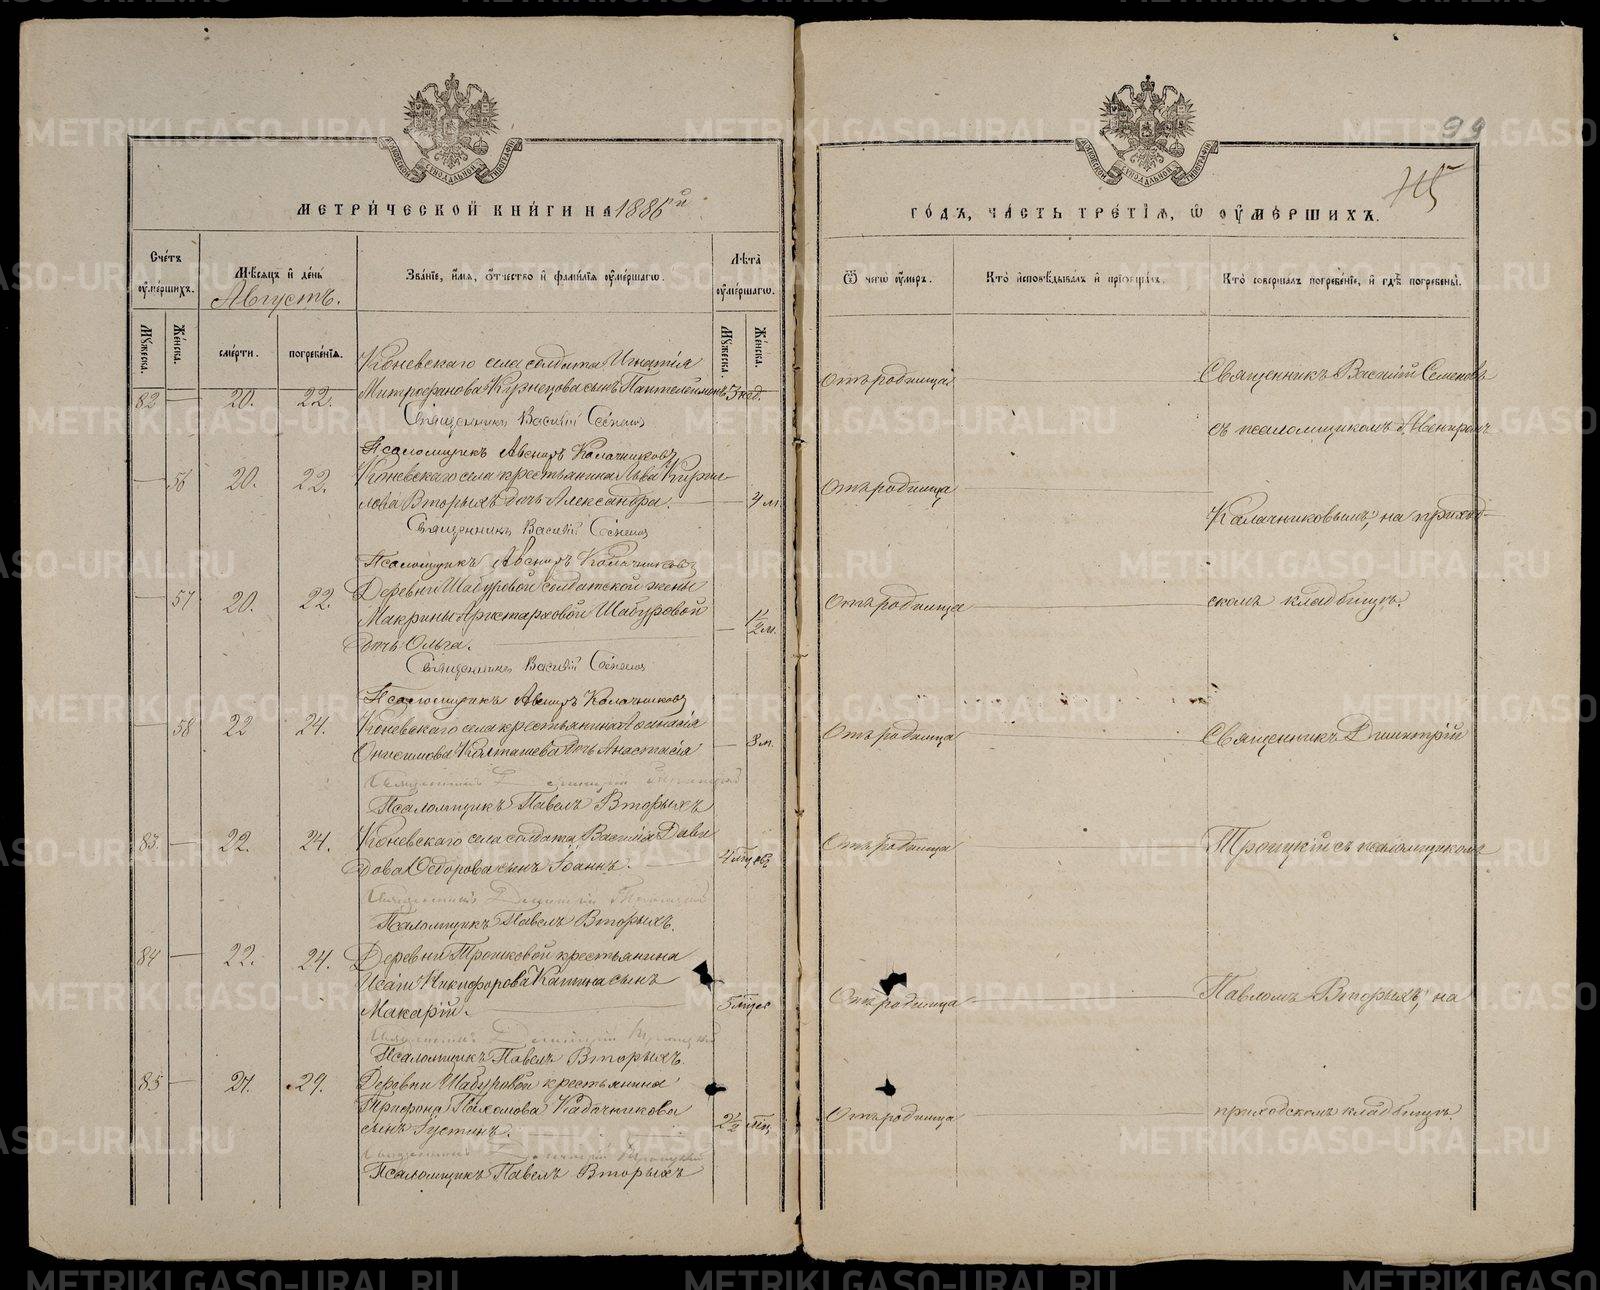 МЕТРИ́ЧЕСКОЙ КНИ́ГИ НА 1886й
Сче́тъ ᲂу҆ме́ршихъ.
Мѣ́сяцъ и҆ де́нь
Августъ.
Зва́нїе, и҆́мя, ѻ҆́тчество и҆ фами́лїя ᲂу҆ме́ршагѡ.
Лѣта̀ ᲂу҆ме́ршагѡ.
Мꙋ́жеска.
Же́нска.
сме́рти.
погребе́нїя.
Мꙋ́жеска.
Же́нска.
Коневскаго села солдата Игнатія
82 20. 22. Митрофанова Кузнецова сынъ Пантелеймонъ 3 нед.
Священникъ Василій Семеновъ
Псаломщикъ Авениръ Калачниковъ
56 20. 22. Коневскаго села крестьянина Льва Кирил-
лова Вторыхъ дочь Александра. 4 м.
Священникъ Василій Семеновъ
Псаломщикъ Авениръ Калачниковъ
57 20. 22. Деревни Шабуровой солдатской жены
Макрины Аристарховой Шабуровой 1/2 м.
дочь Ольга.
Священникъ Василій Семеновъ
Псаломщикъ Авениръ Калачниковъ
58 22 24. Коневскаго села крестьянина Аѳанасія
Онисимова Колташева дочь Анастасія 8 м.
Священникъ Димитрій Троицкій
Псаломщикъ Павелъ Вторыхъ
83. 22. 24. Коневскаго села солдата Василія Дави
дова Ѳедорова сынъ Іоаннъ.
Священникъ Димитрій Троицкій
Псаломщикъ Павелъ Вторыхъ.
84 22. 24. Деревни Трошковой крестьянина
Исаіи Никифорова Катина сынъ
Макарій. 5 мѣс
Священникъ Димитрій Троицкій
Псаломщикъ Павелъ Вторыхъ.
85 27. 29. Деревни Шабуровой крестьянина
Трифона Пахомова Кадочникова
сынъ Іустинъ. 2 1/2 мѣ
Священникъ Димитрій Троицкій
Псаломщикъ Павелъ Вторыхъ
99
715
ГО́ДЪ, ЧА́СТЬ ТРЕ́ТЇЯ, Ѡ҆ ОУ҆МЕ́РШИХЪ.
Ѿ чегѡ̀ ᲂу҆́меръ.
Кто̀ и҆сповѣ́дывалъ и҆ прїѻбща́лъ.
Кто̀ соверша́лъ погребе́нїе, и҆ гдѣ̀ погребены̀.
Отъ родимца
Священникъ Василій Семеновъ
съ псаломщикомъ Авениромъ
Отъ родимца
Калачниковымъ, на приход-
Отъ родимца
скомъ кладбищѣ.
Отъ родимца
Священникъ Димитрій
Отъ родимца
Троицкій съ псаломщикомъ
Отъ родимца
Павломъ Вторыхъ, на
Отъ родимца
приходскомъ кладбищѣ.
METRIKI.GASO-URAL.RU